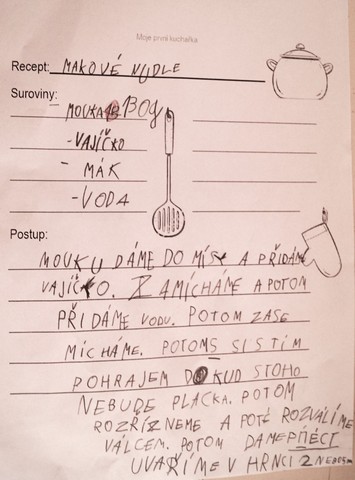 Moje první kuchařka
Recept: MAKOVÉ NUDLE
Suroviny:
MOUKA 130g
-VAJÍČKO
- MÁK
-VODA
Postup:
MOUKU DÁME DO MÍSY A PŘIDÁM
VAJÍČKO. ZAMÍCHÁME A POTOM
PŘIDÁME VODU. POTOM ZASE
MÍCHÁME. POTOM S SISTÍM
POHRAJEM DOKUD STOHO
NEBUDE PLACKA. POTOM
ROZŘÍZNEME A POTÉ ROZVÁLÍME
VÁLCEM. POTOM DAME PÍIECT
UVAŘÍME V HRNCI